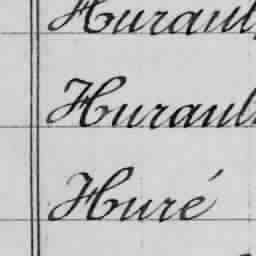 Hurault
Hurault
Huré